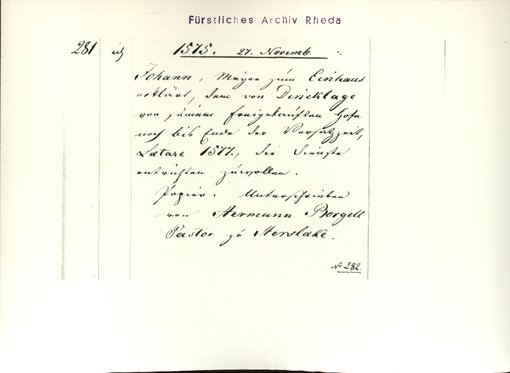 Fürstliches Archiv Rheda
281 1575. 27. Novemb.
Johann, Meyer zum Einhaus
erklärt, dem von Dincklage
von seinem freigekauften Hofe
noch bis Ende der Versatzzeit,
Laetare 1577, die Dienste
entrichten zu wollen.
Papier. Unterschrieben
von Hermann Borgelt
Pastor zu Herslake.
No 282.